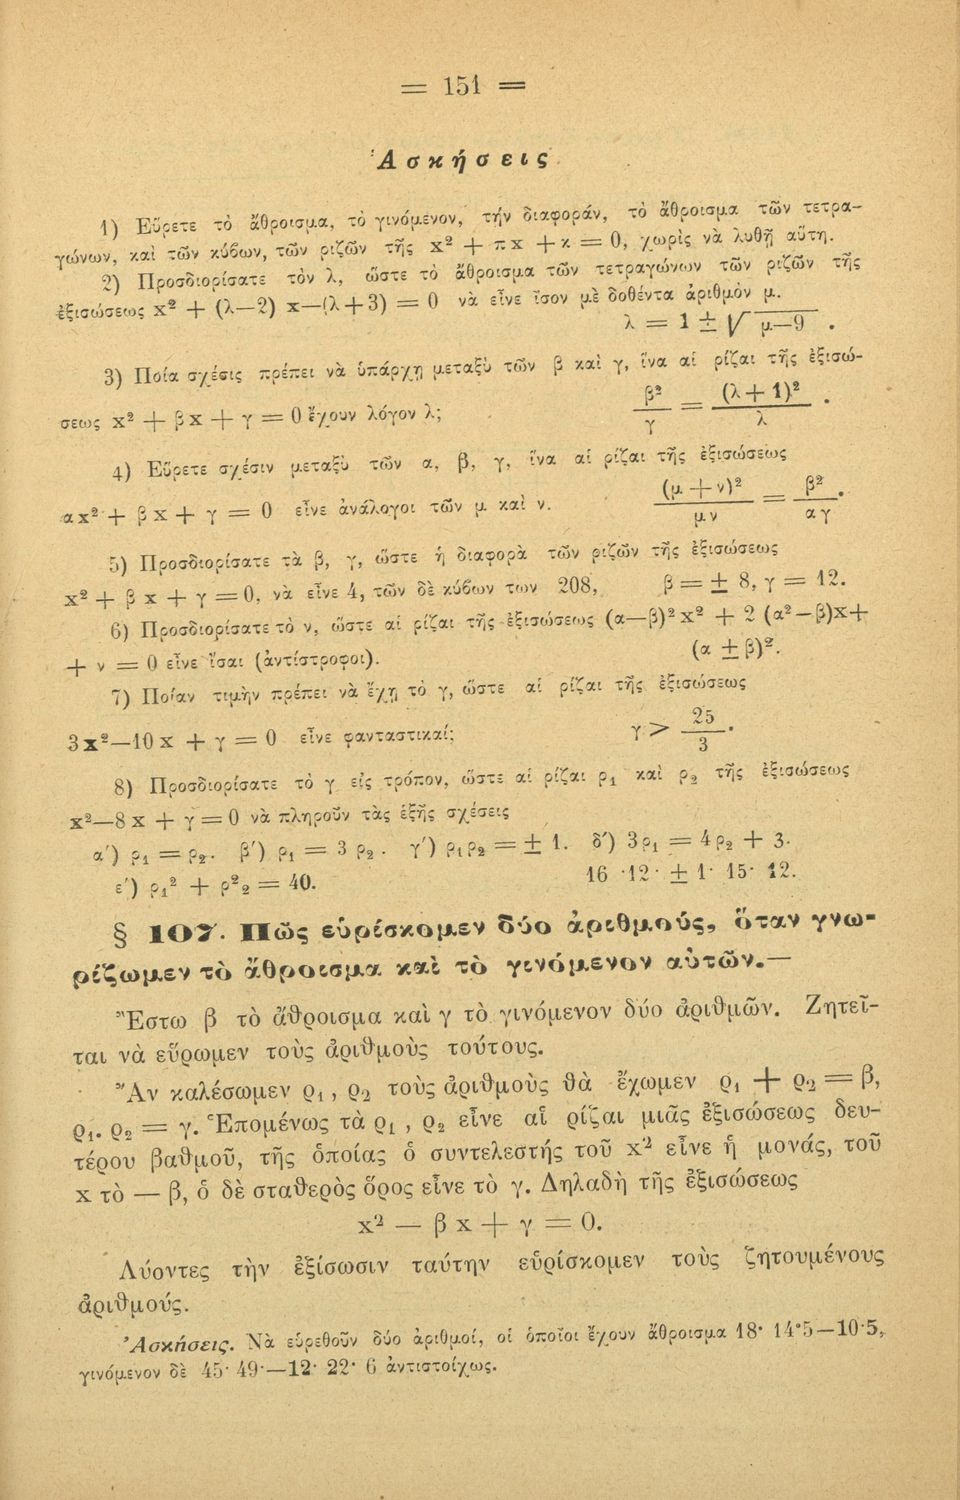 = 151 =
Ἀσκήσεις
1) Εὕρετε τὸ ἄθροισμα, τὸ γινόμενον, τὴν διαφοράν, τὸ ἄθροισμα τῶν τετρα-
γώνων, καὶ τῶν κύβων, τῶν ριζῶν τῆς x² + πx + κ = 0, χωρὶς νὰ λυθῇ αὕτη.
2) Προσδιορίσατε τὸν λ, ὥστε τὸ ἄθροισμα τῶν τετραγώνων τῶν ριζῶν τῆς
ἐξισώσεως x² + (λ—2) x—(λ+3) = 0 νὰ εἶνε ἴσον μὲ δοθέντα ἀριθμὸν μ.
λ = 1 ± √μ—9 .
3) Ποία σχέσις πρέπει νὰ ὑπάρχῃ μεταξὺ τῶν β καὶ γ, ἵνα αἱ ρίζαι τῆς ἐξισώ-
σεως x² + βx + γ = 0 ἔχουν λόγον λ; β²/γ = (λ+1)²/λ .
4) Εὕρετε σχέσιν μεταξὺ τῶν α, β, γ, ἵνα αἱ ρίζαι τῆς ἐξισώσεως
αx² + βx + γ = 0 εἶνε ἀνάλογοι τῶν μ καὶ ν. (μ+ν)²/μν = β²/αγ .
5) Προσδιορίσατε τὰ β, γ, ὥστε ἡ διαφορὰ τῶν ριζῶν τῆς ἐξισώσεως
x² + βx + γ = 0, νὰ εἶνε 4, τῶν δὲ κύβων των 208, β = ± 8, γ = 12.
6) Προσδιορίσατε τὸ ν, ὥστε αἱ ρίζαι τῆς ἐξισώσεως (α—β)²x² + 2 (α²—β)x+
+ ν = 0 εἶνε ἴσαι (ἀντίστροφοι). (α ± β)².
7) Ποίαν τιμὴν πρέπει νὰ ἔχῃ τὸ γ, ὥστε αἱ ρίζαι τῆς ἐξισώσεως
3x²—10x + γ = 0 εἶνε φανταστικαί; γ > 25/3 .
8) Προσδιορίσατε τὸ γ εἰς τρόπον, ὥστε αἱ ρίζαι ρ₁ καὶ ρ₂ τῆς ἐξισώσεως
x²—8x + γ = 0 νὰ πληροῦν τὰς ἑξῆς σχέσεις
α΄) ρ₁ = ρ₂. β΄) ρ₁ = 3ρ₂. γ΄) ρ₁ρ₂ = ± 1. δ΄) 3ρ₁ = 4ρ₂ + 3.
ε΄) ρ₁² + ρ²₂ = 40. 16· 12· ± 1· 15· 12.
§ 107. Πῶς εὑρίσκομεν δύο ἀριθμούς, ὅταν γνω-
ρίζωμεν τὸ ἄθροισμα καὶ τὸ γινόμενον αὐτῶν.—
Ἔστω β τὸ ἄθροισμα καὶ γ τὸ γινόμενον δύο ἀριθμῶν. Ζητεῖ-
ται νὰ εὕρωμεν τοὺς ἀριθμοὺς τούτους.
Ἂν καλέσωμεν ρ₁, ρ₂ τοὺς ἀριθμοὺς θὰ ἔχωμεν ρ₁ + ρ₂ = β,
ρ₁. ρ₂ = γ. Ἑπομένως τὰ ρ₁, ρ₂ εἶνε αἱ ρίζαι μιᾶς ἐξισώσεως δευ-
τέρου βαθμοῦ, τῆς ὁποίας ὁ συντελεστής τοῦ x² εἶνε ἡ μονάς, τοῦ
x τὸ — β, ὁ δὲ σταθερὸς ὅρος εἶνε τὸ γ. Δηλαδὴ τῆς ἐξισώσεως
x² — βx + γ = 0.
Λύοντες τὴν ἐξίσωσιν ταύτην εὑρίσκομεν τοὺς ζητουμένους
ἀριθμούς.
Ἀσκήσεις. Νὰ εὑρεθοῦν δύο ἀριθμοί, οἱ ὁποῖοι ἔχουν ἄθροισμα 18· 14·5—10·5,
γινόμενον δὲ 45· 49·—12· 22· 6 ἀντιστοίχως.